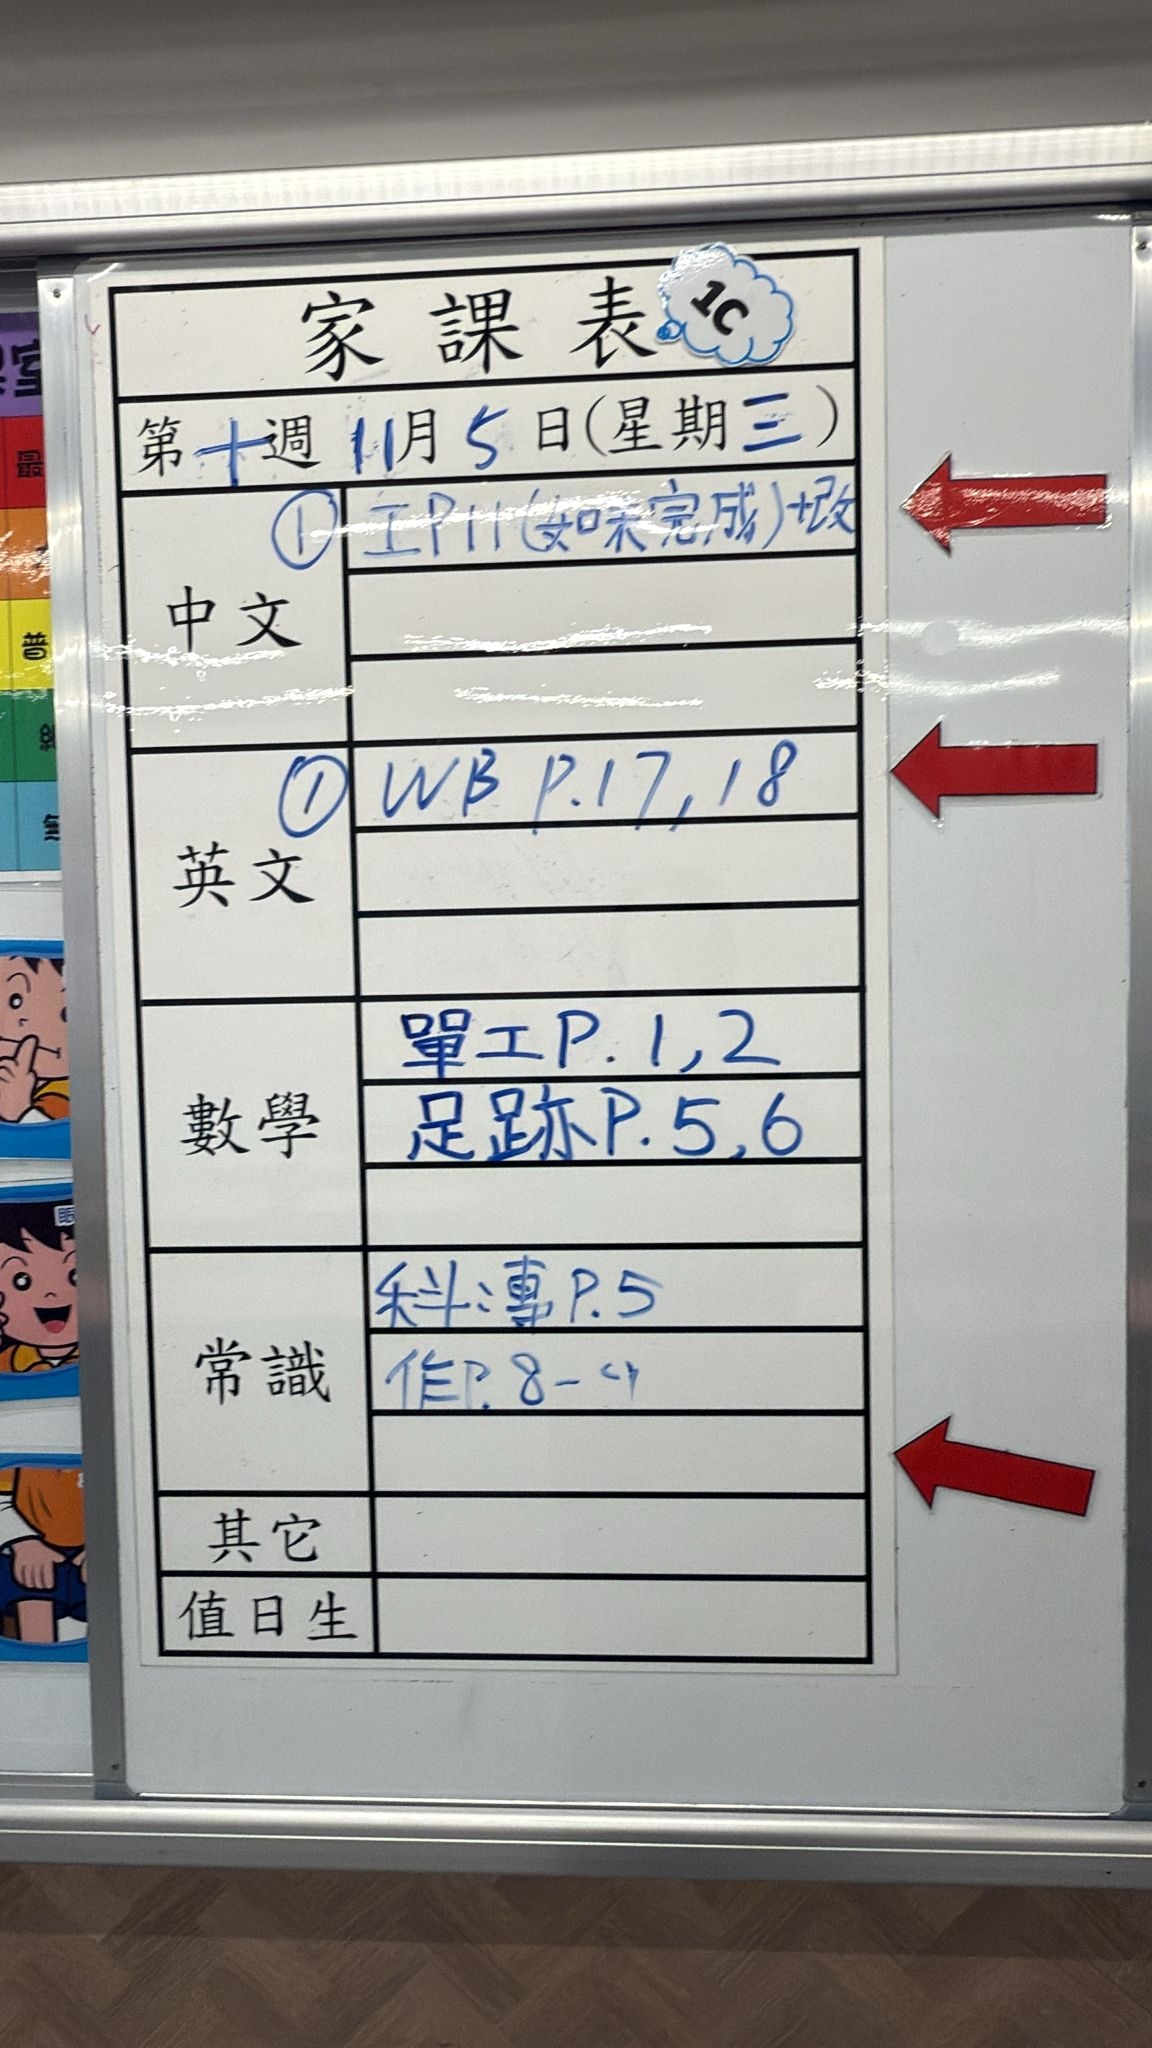 家課表 1C
第十週 11月5日(星期三)
中文
① 工P11(如未完成)+改
英文
① WB P.17,18
數學
單工P. 1,2
足跡P. 5,6
常識
科:專P.5
作P. 8-
其它
值日生
最
普